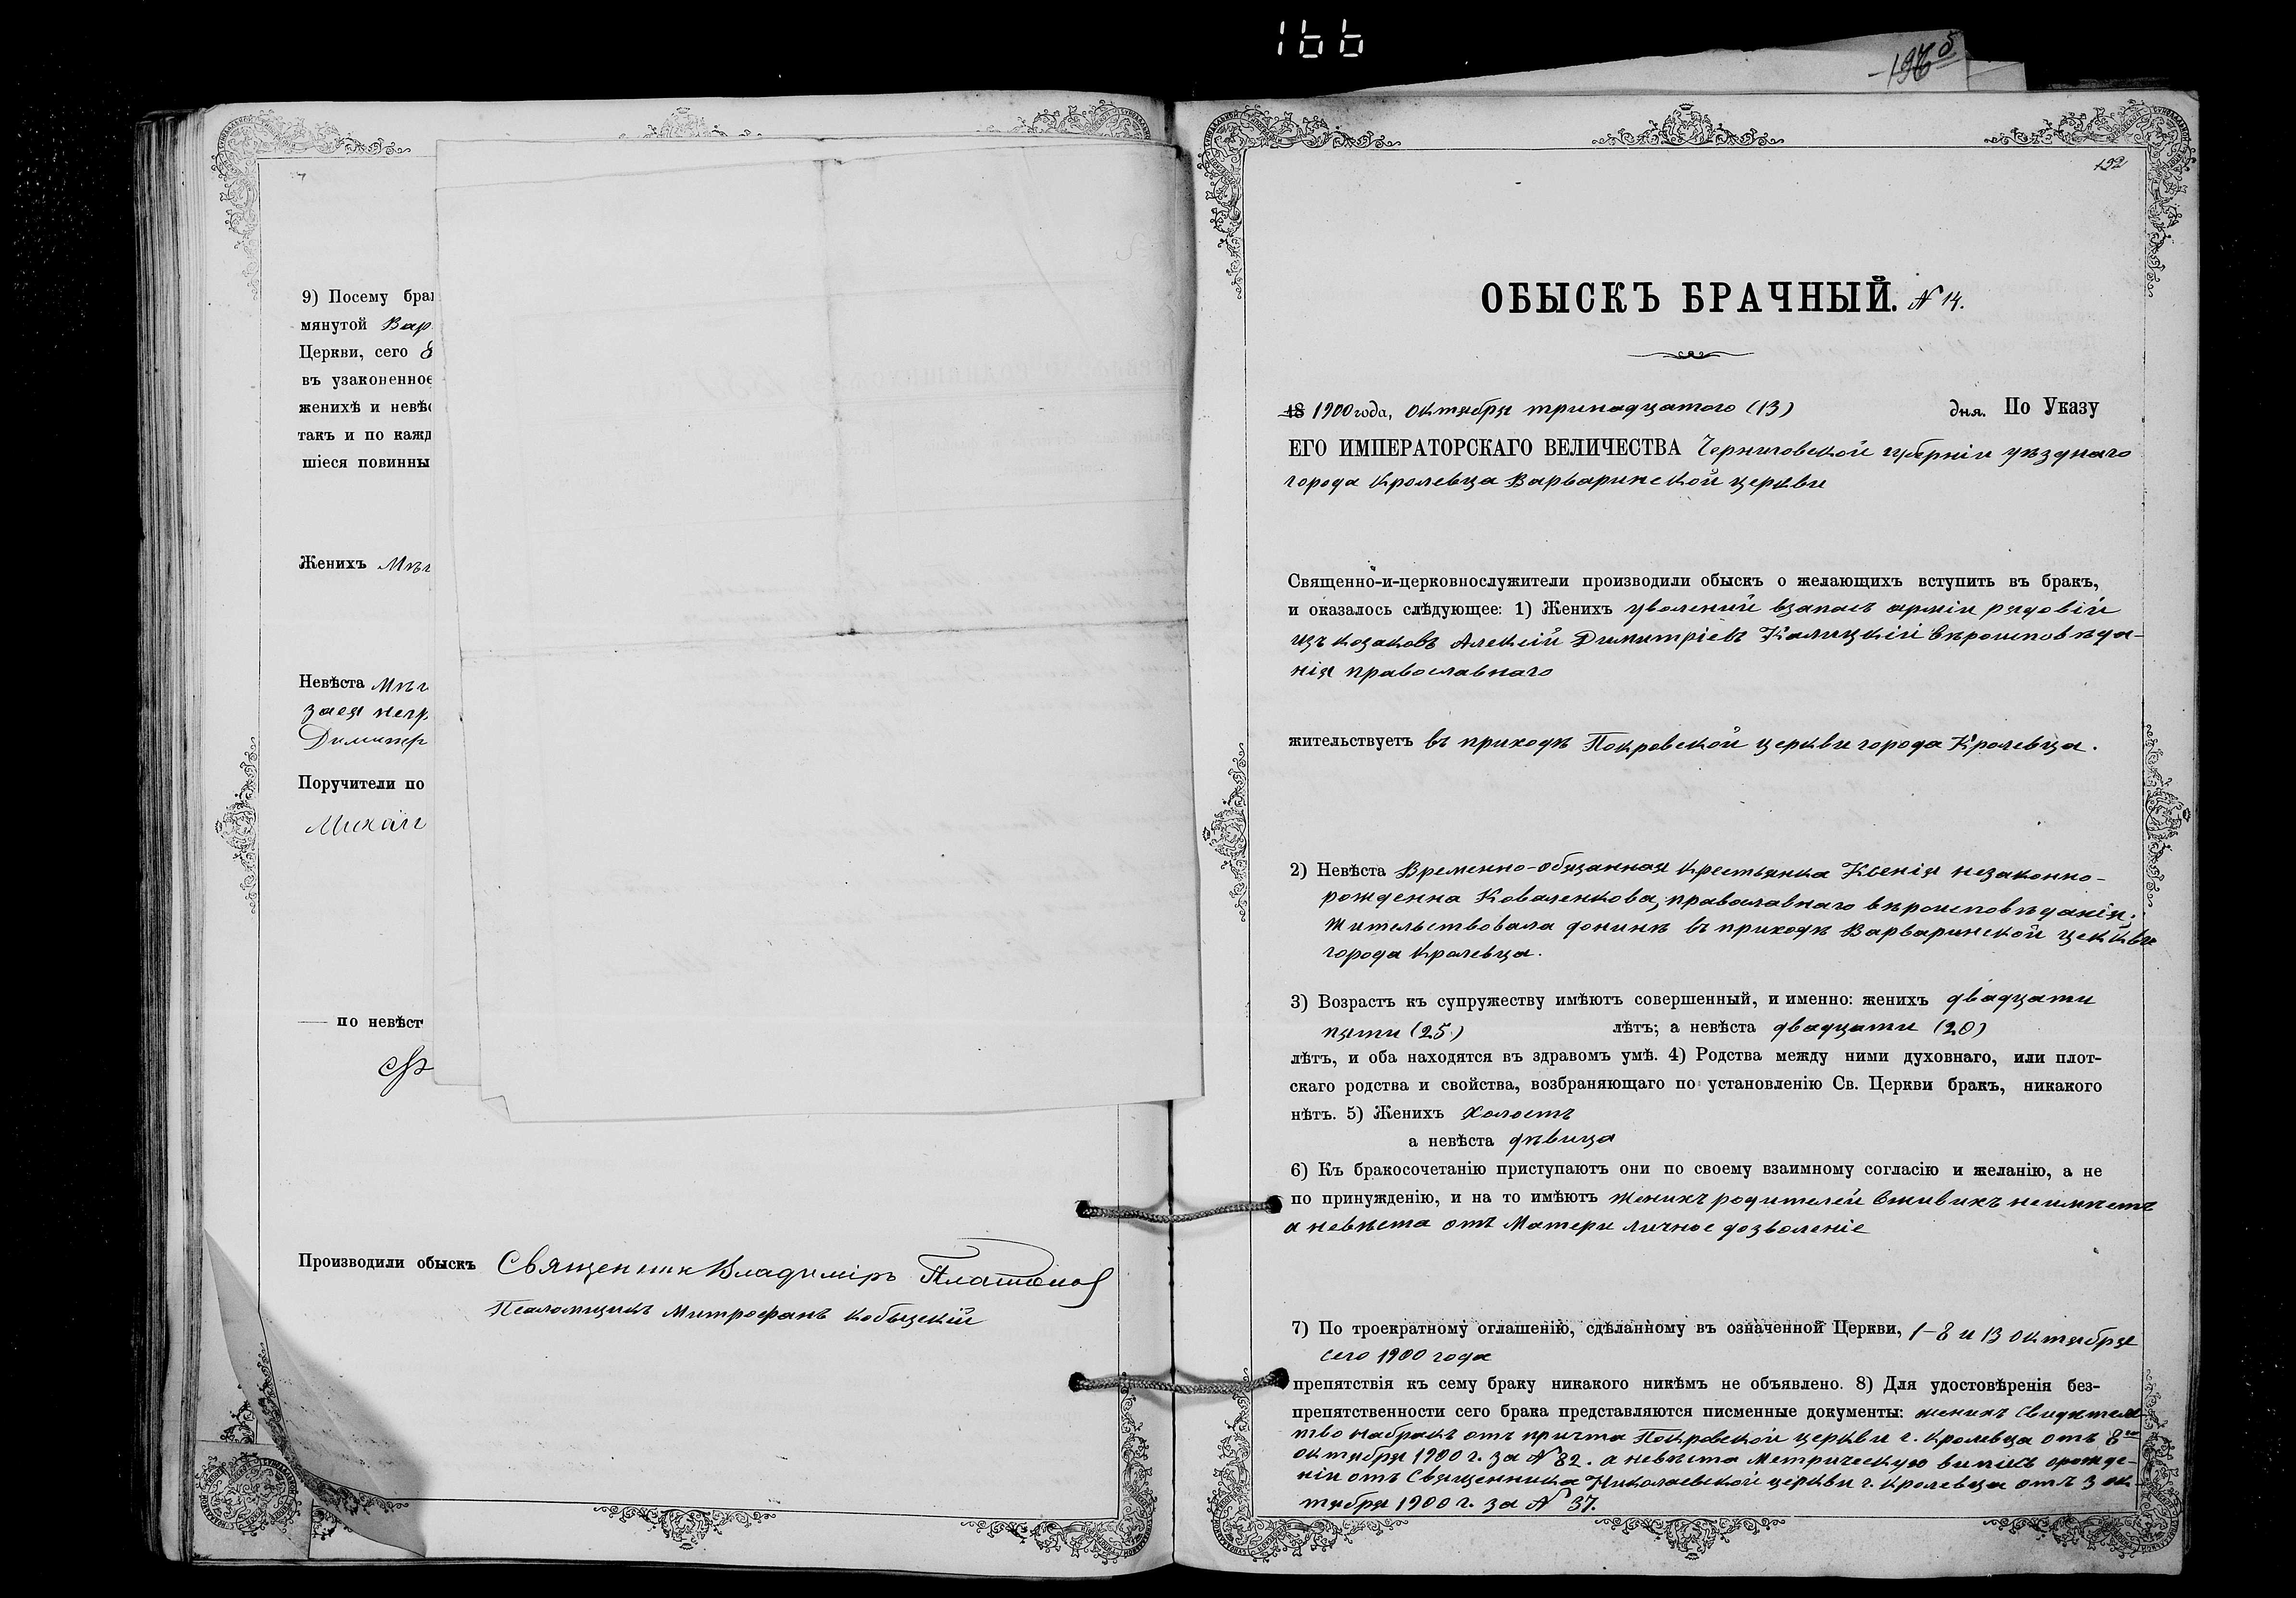 166
192
9) Посему бра
мянутой Вар
Церкви, сего
въ узаконенное
женихѣ и невѣс
такъ и по кажд
шіеся повинны
Женихъ Мѣщ
Невѣста Мѣщ
зася негр
Димитр
Поручители по
Михаи
— по невѣст
Производили обыскъ Священникъ Владиміръ Платонов
Псаломщикъ Митрофанъ Кобыцкій
ОБЫСКЪ БРАЧНЫЙ. № 14.
18 1900 года, октября тринадцатого (13) дня. По Указу
ЕГО ИМПЕРАТОРСКАГО ВЕЛИЧЕСТВА Черниговской губерніи уѣзднаго
города Кролевца Варваринской церкви
Священно-и-церковнослужители производили обыскъ о желающихъ вступить въ бракъ,
и оказалось слѣдующее: 1) Женихъ уволений взапасъ арміи рядовій
изъ козаковъ Алексій Димитріевъ Калицкій вѣроисповѣда-
нія православнаго
жительствуетъ въ приходѣ Покровской церкви города Кролевца.
2) Невѣста Временно-обязанная крестьянка Ксенія незаконно-
рожденна Коваленкова, православнаго вѣроисповѣданія.
Жительствовала донинѣ въ приходѣ Варваринской цекквы
города Кролевца.
3) Возрастъ къ супружеству имѣютъ совершенный, и именно: женихъ двадцати
пяти (25) лѣтъ; а невѣста двадцати (20)
лѣтъ, и оба находятся въ здравомъ умѣ. 4) Родства между ними духовнаго, или плот-
скаго родства и свойства, возбраняющаго по установленію Св. Церкви бракъ, никакого
нѣтъ. 5) Женихъ Холостъ
а невѣста дѣвица
6) Къ бракосочетанію приступаютъ они по своему взаимному согласію и желанію, а не
по принужденію, и на то имѣютъ Женихъ родителей вживихъ неимѣетъ
а невѣста отъ Матери личное дозволеніе
7) По троекратному оглашенію, сдѣланному въ означенной Церкви, 1-8 и 13 октября
сего 1900 года
препятствія къ сему браку никакого никѣмъ не объявлено. 8) Для удостовѣренія без-
препятственности сего брака представляются писменные документы: женихъ Свидѣтелс
тво набракъ отъ причта Покровской церкви г. Кролевца отъ 8го
октября 1900 г. за № 82. а невѣста Метрическую випись орожде-
ніи отъ Священника Николаевской церкви г. Кролевца отъ 3 ок
тября 1900 г. за № 37.